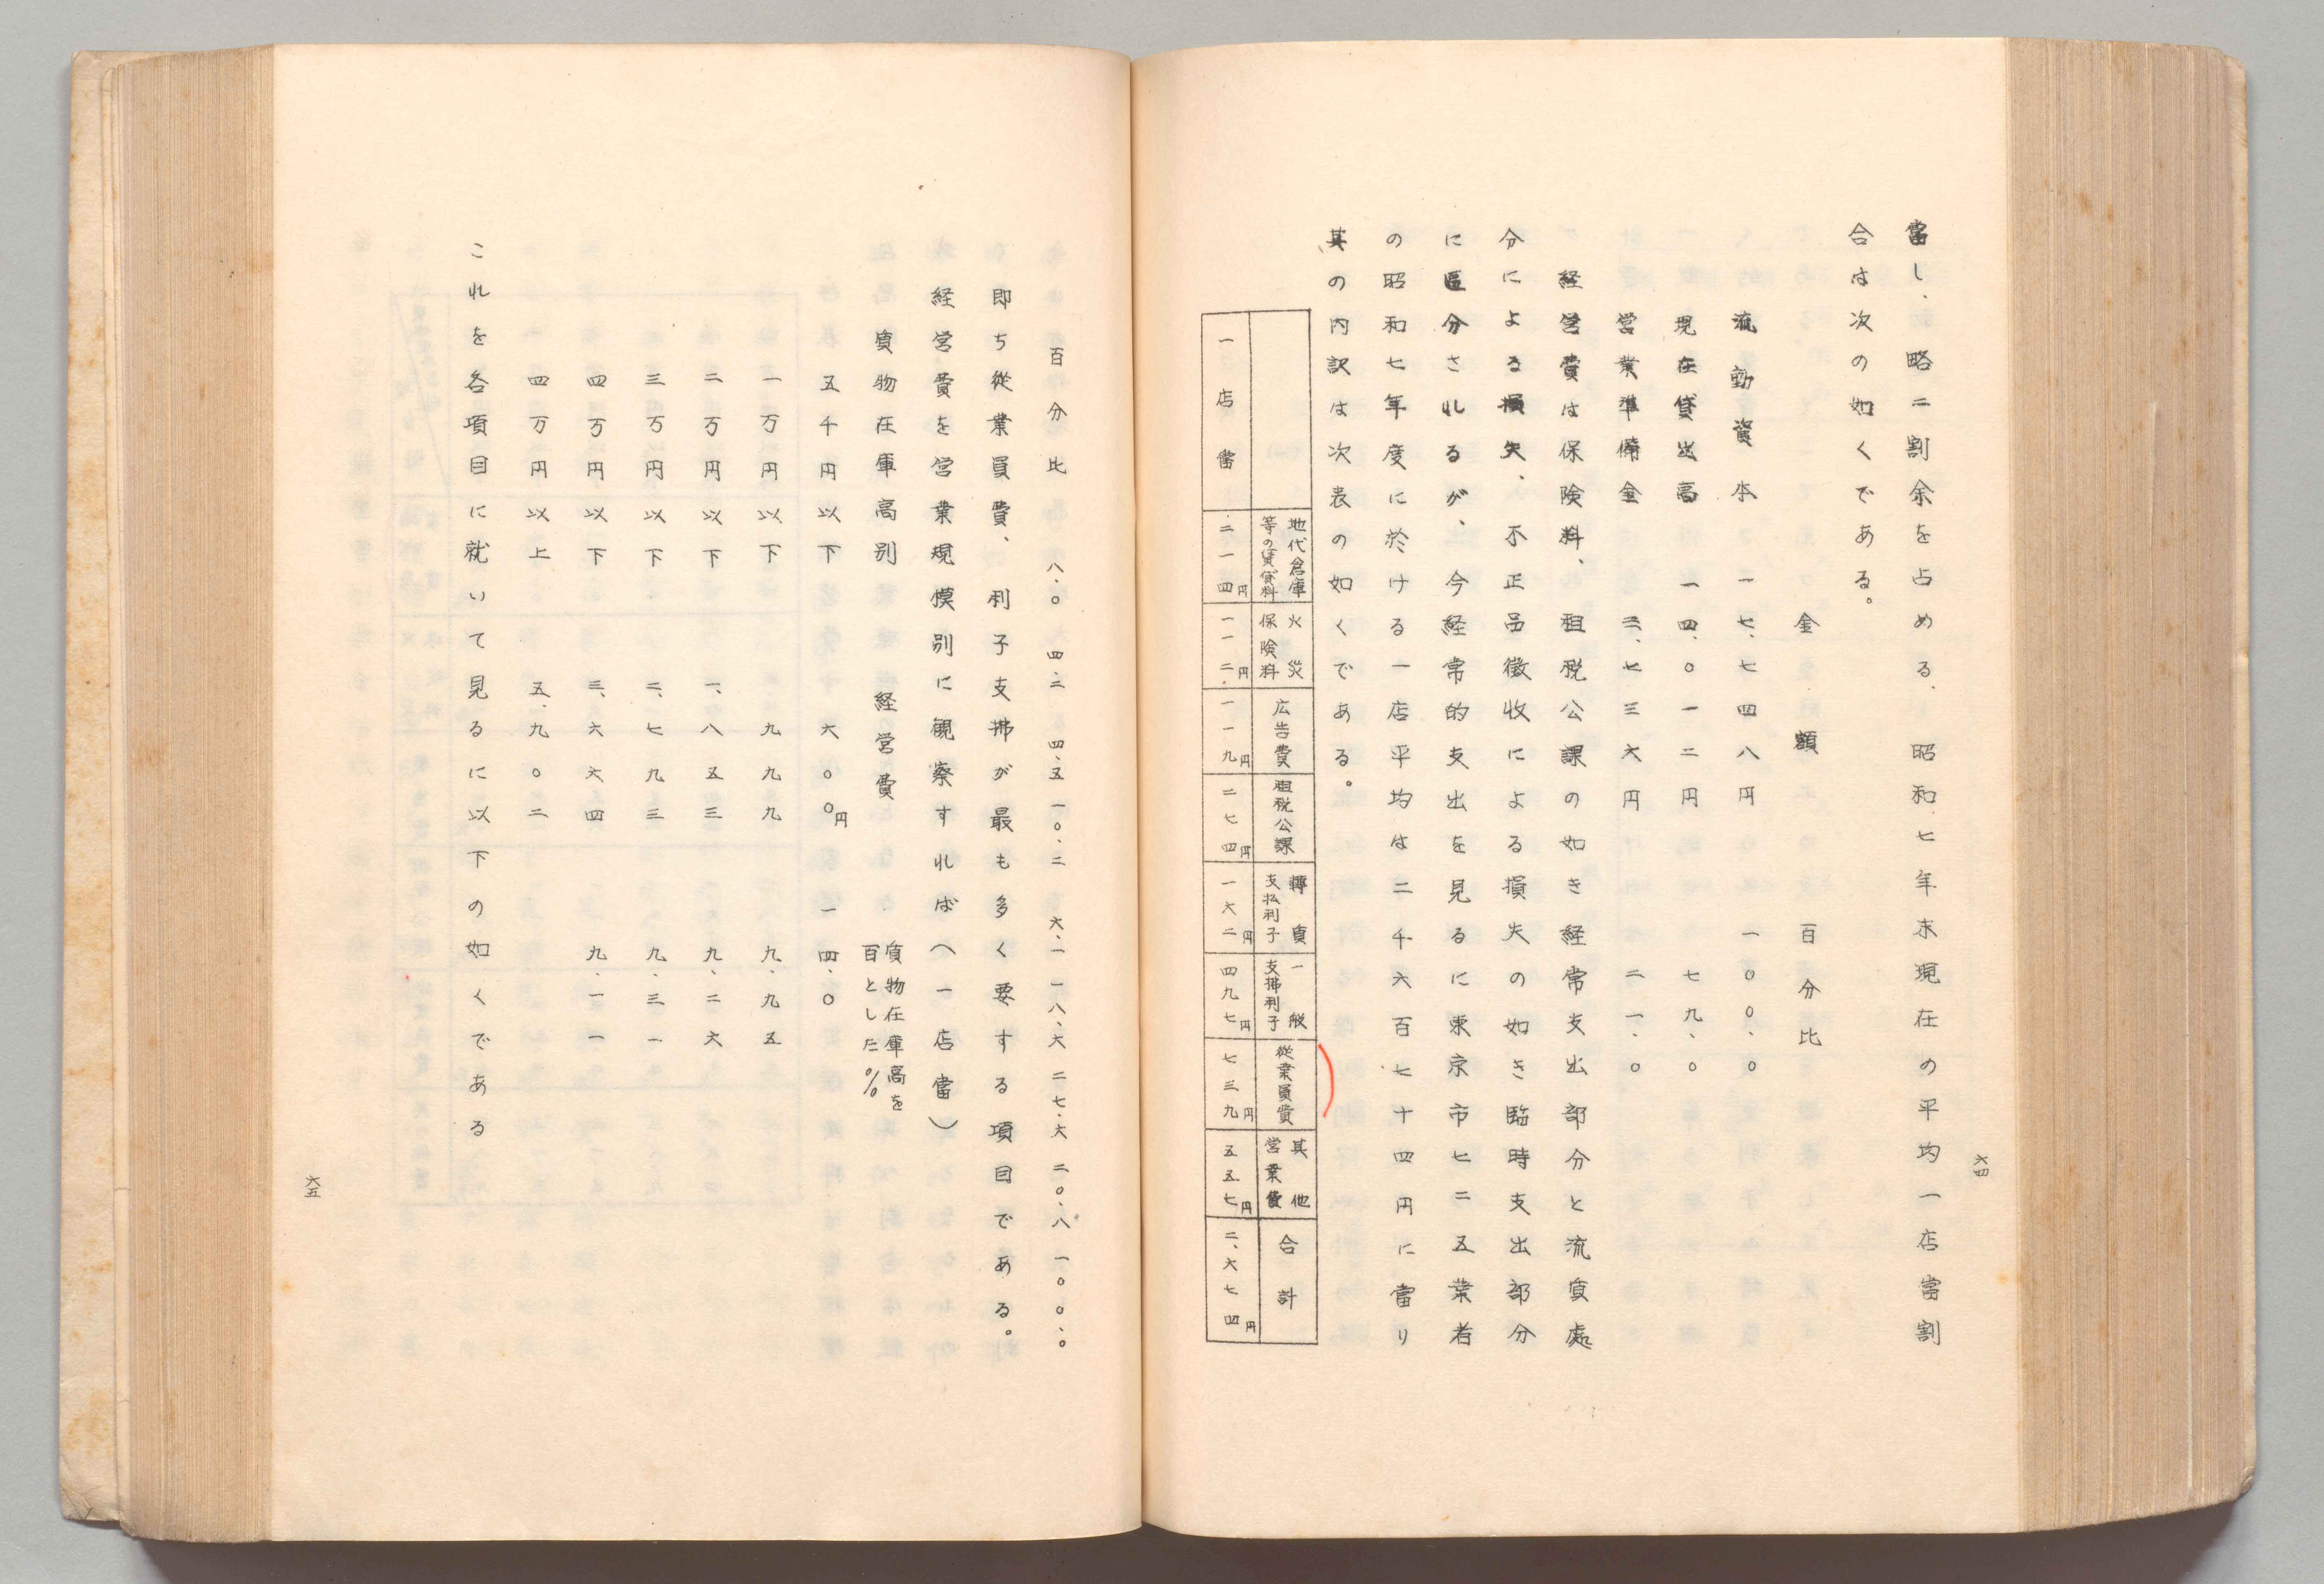 當し、略二割余を占める、昭和七年末現在の平均一店當割
合は次の如くである。
金額 百分比
流動資本 一七、七四八円 一〇〇、〇
現在貸出高 一四、〇一二円 七九、〇
営業準備金 三、七三六円 二一、〇
経営費は保険料、租税公課の如き経常支出部分と流質處
分による損失、不正品徴収による損失の如き臨時支出部分
に區分されるが、今経常的支出を見るに東京市七二五業者
の昭和七年度に於ける一店平均は二千六百七十四円に當り
其の内訳は次表の如くである。
地代倉庫等の賃貸料 火災保険料 広告費 租税公課 轉質支払利子 一般支拂利子 從業員費 其他営業費 合計
一店當 二一四円 一一二円 一一九円 二七四円 一六二円 四九七円 七三九円 五五七円 二、六七四円
六四
百分比 八、〇 四、二 四、五 一〇、二 六、一 一八、六 二七、六 二〇、八 一〇〇、〇
即ち從業員費、利子支拂が最も多く要する項目である。
経営費を営業規模別に観察すれば(一店當)
質物在庫高別 経営費 質物在庫高を百とした%
五千円以下 六〇〇円 一四、〇
一万円以下 九九九 九、九五
二万円以下 一、八五三 九、二六
三万円以下 二、七九三 九、三一
四万円以下 三、六六四 九、一一
四万円以上 五、九〇二
これを各項目に就いて見るに以下の如くである
六五